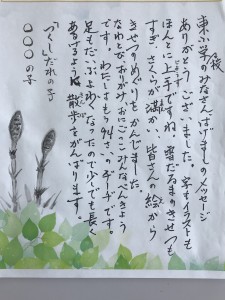 東小学校のみなさんはげましのメッセージ
ありがとうございました。字もイラストも
ほんとに上手ですね。雪だるまのきせつも
すぎ、さくらが満かい、皆さんの絵から
きせつのめぐりをかんじました。
なわとび、おりがみ、おにごっこみなべんきょう
です。わたしはもう94さいのヂーヂです。
足もだいぶよわくなったので少しでも長く
あるけるよう散歩をがんばります。
「つくしだれの子
○○○の子